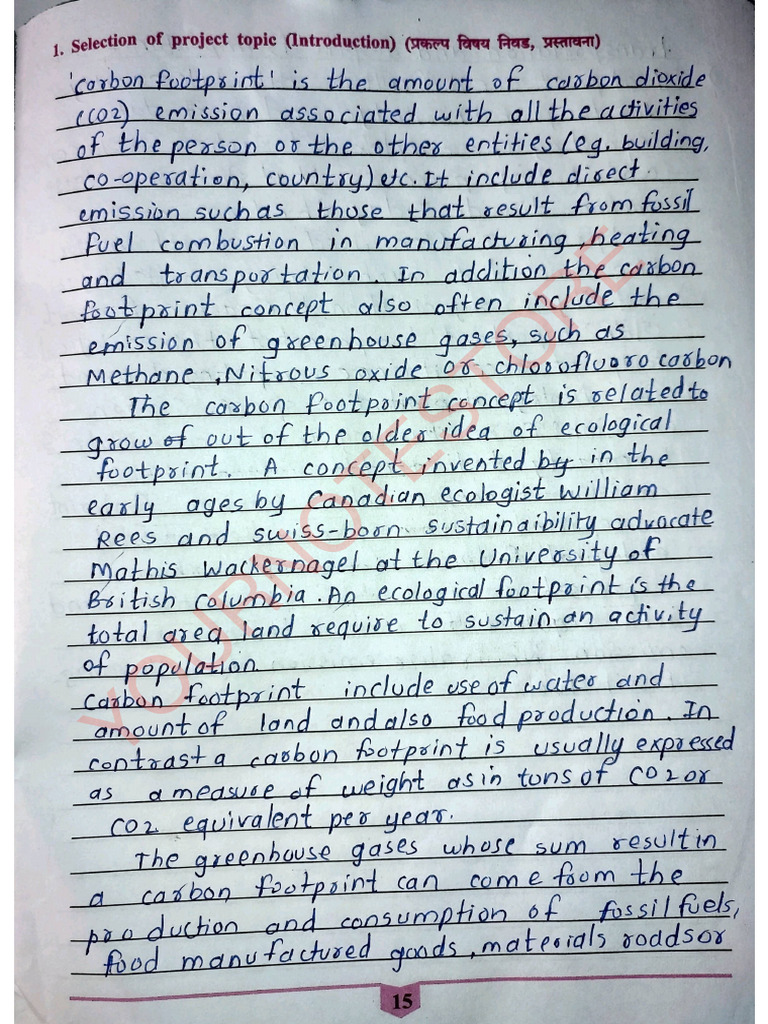 1. Selection of project topic (Introduction) (प्रकल्प विषय निवड, प्रस्तावना)
'carbon footprint' is the amount of carbon dioxide
(CO2) emission associated with all the activities
of the person or the other entities (eg. building,
co-operation, country) etc. It include direct
emission such as those that result from fossil
fuel combustion in manufacturing, heating
and transportation. In addition the carbon
footprint concept also often include the
emission of greenhouse gases, such as
Methane, Nitrous oxide or chlorofluoro carbon
The carbon footprint concept is related to
grow of out of the older idea of ecological
footprint. A concept invented by in the
early ages by Canadian ecologist William
Rees and swiss-born sustainaibility advocate
Mathis Wackernagel at the University of
British Columbia. An ecological footprint is the
total area land require to sustain an activity
of population
Carbon footprint include use of water and
amount of land and also food production. In
contrast a carbon footprint is usually expressed
as a measure of weight as in tons of CO2 or
CO2 equivalent per year.
The greenhouse gases whose sum result in
a carbon footprint can come from the
production and consumption of fossil fuels,
food manufactured goods, materials roddsor
15
YOURNOTESTORE